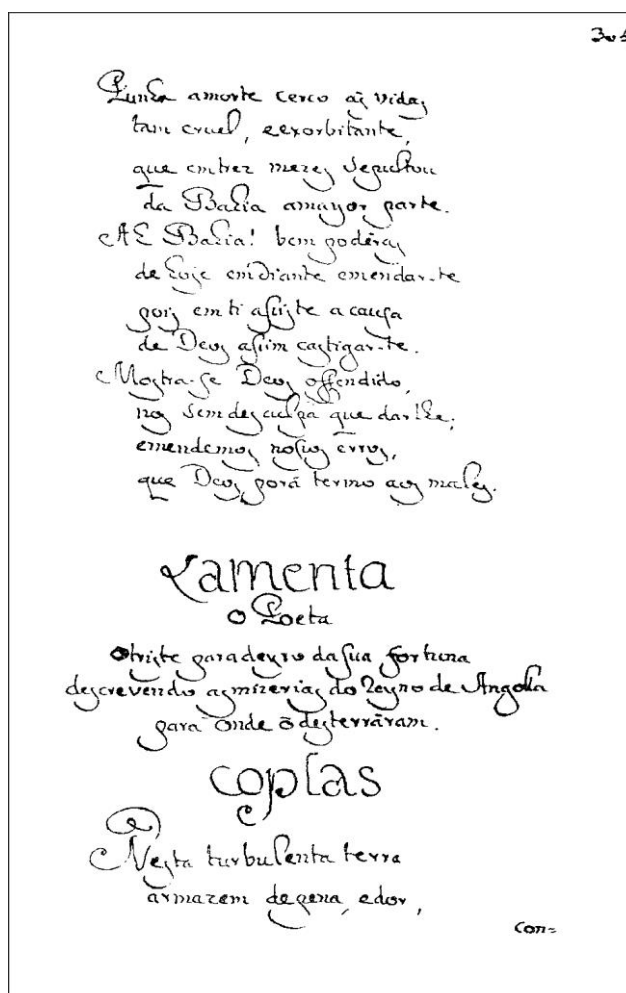 Punha amorte cerco as vidas
tam cruel, eexorbitante,
que emtrez mezes sepultou
da Bahia amayor parte.
Ah Bahia! bem podéras
de hoje emdiante emendar-te
pois em ti assiste a causa
de Deos assim castigar-te.
Mostra-se Deos offendido,
nos sem desculpa que dar lhe;
emendemos nossos érros,
que Deos porá termo aos males.
Lamenta
o Poeta
otriste paradeyro dasua fortuna
descrevendo asmizerias do Reyno de Angolla
para onde õ desterráram.
coplas
Nesta turbulenta terra
armazem depena, edor,
con=